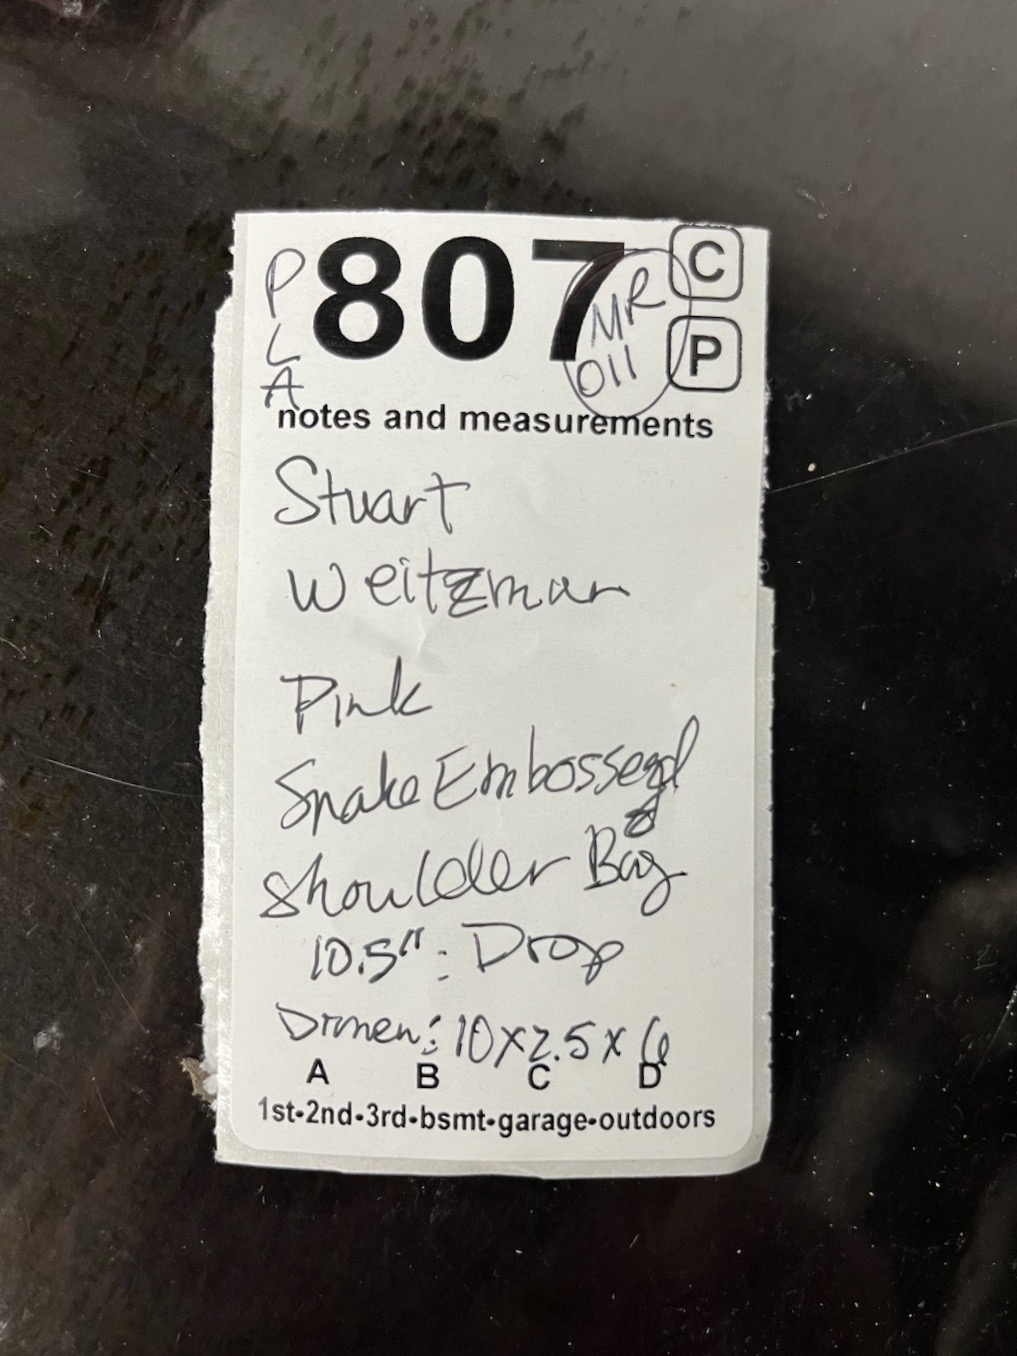 PLA
807
MR
011
C
P
notes and measurements
Stuart
Weitzman
Pink
Snake Embossed
Shoulder Bag
10.5": Drop
Dimen: 10x2.5x6
A B C D
1st•2nd•3rd•bsmt•garage•outdoors